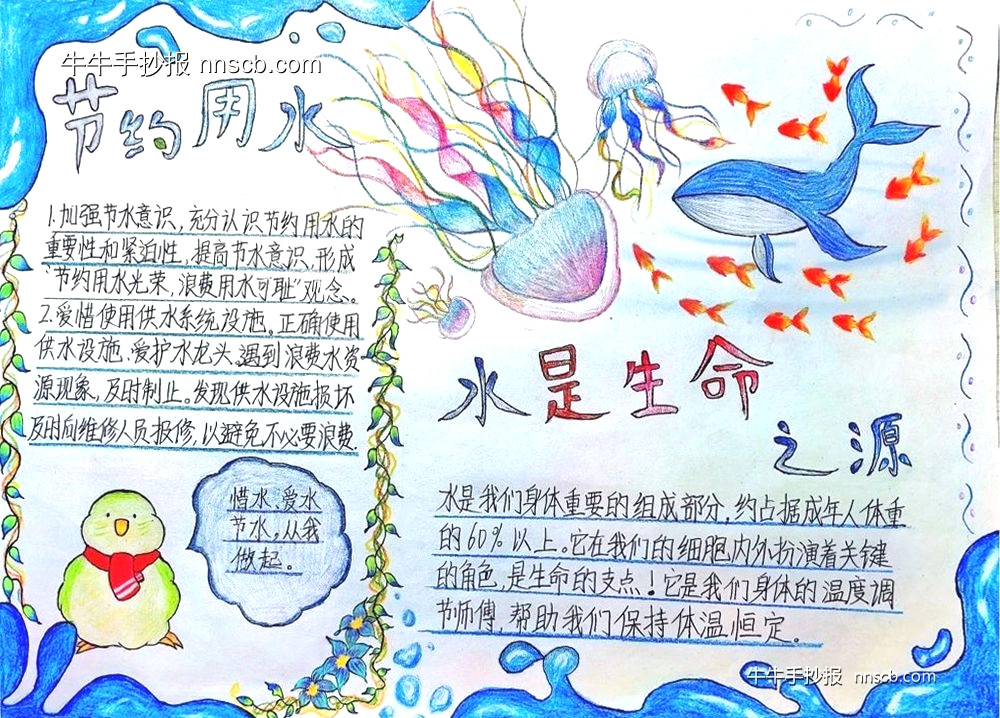 牛牛手抄报 nnscb.com
nnscb.com
节约用水
1.加强节水意识,充分认识节约用水的
重要性和紧迫性,提高节水意识、形成
“节约用水光荣,浪费用水可耻”观念。
2.爱惜使用供水系统设施。正确使用
供水设施、爱护水龙头、遇到浪费水资
源现象,及时制止。发现供水设施损坏
及时向维修人员报修,以避免不必要浪费
惜水、爱水
节水。从我
做起。
水是生命
之源
水是我们身体重要的组成部分,约占据成年人体重
的60%以上。它在我们的细胞内外扮演着关键
的角色,是生命的支点!它是我们身体的温度调
节师傅,帮助我们保持体温恒定。
牛牛手抄报 nnscb.com